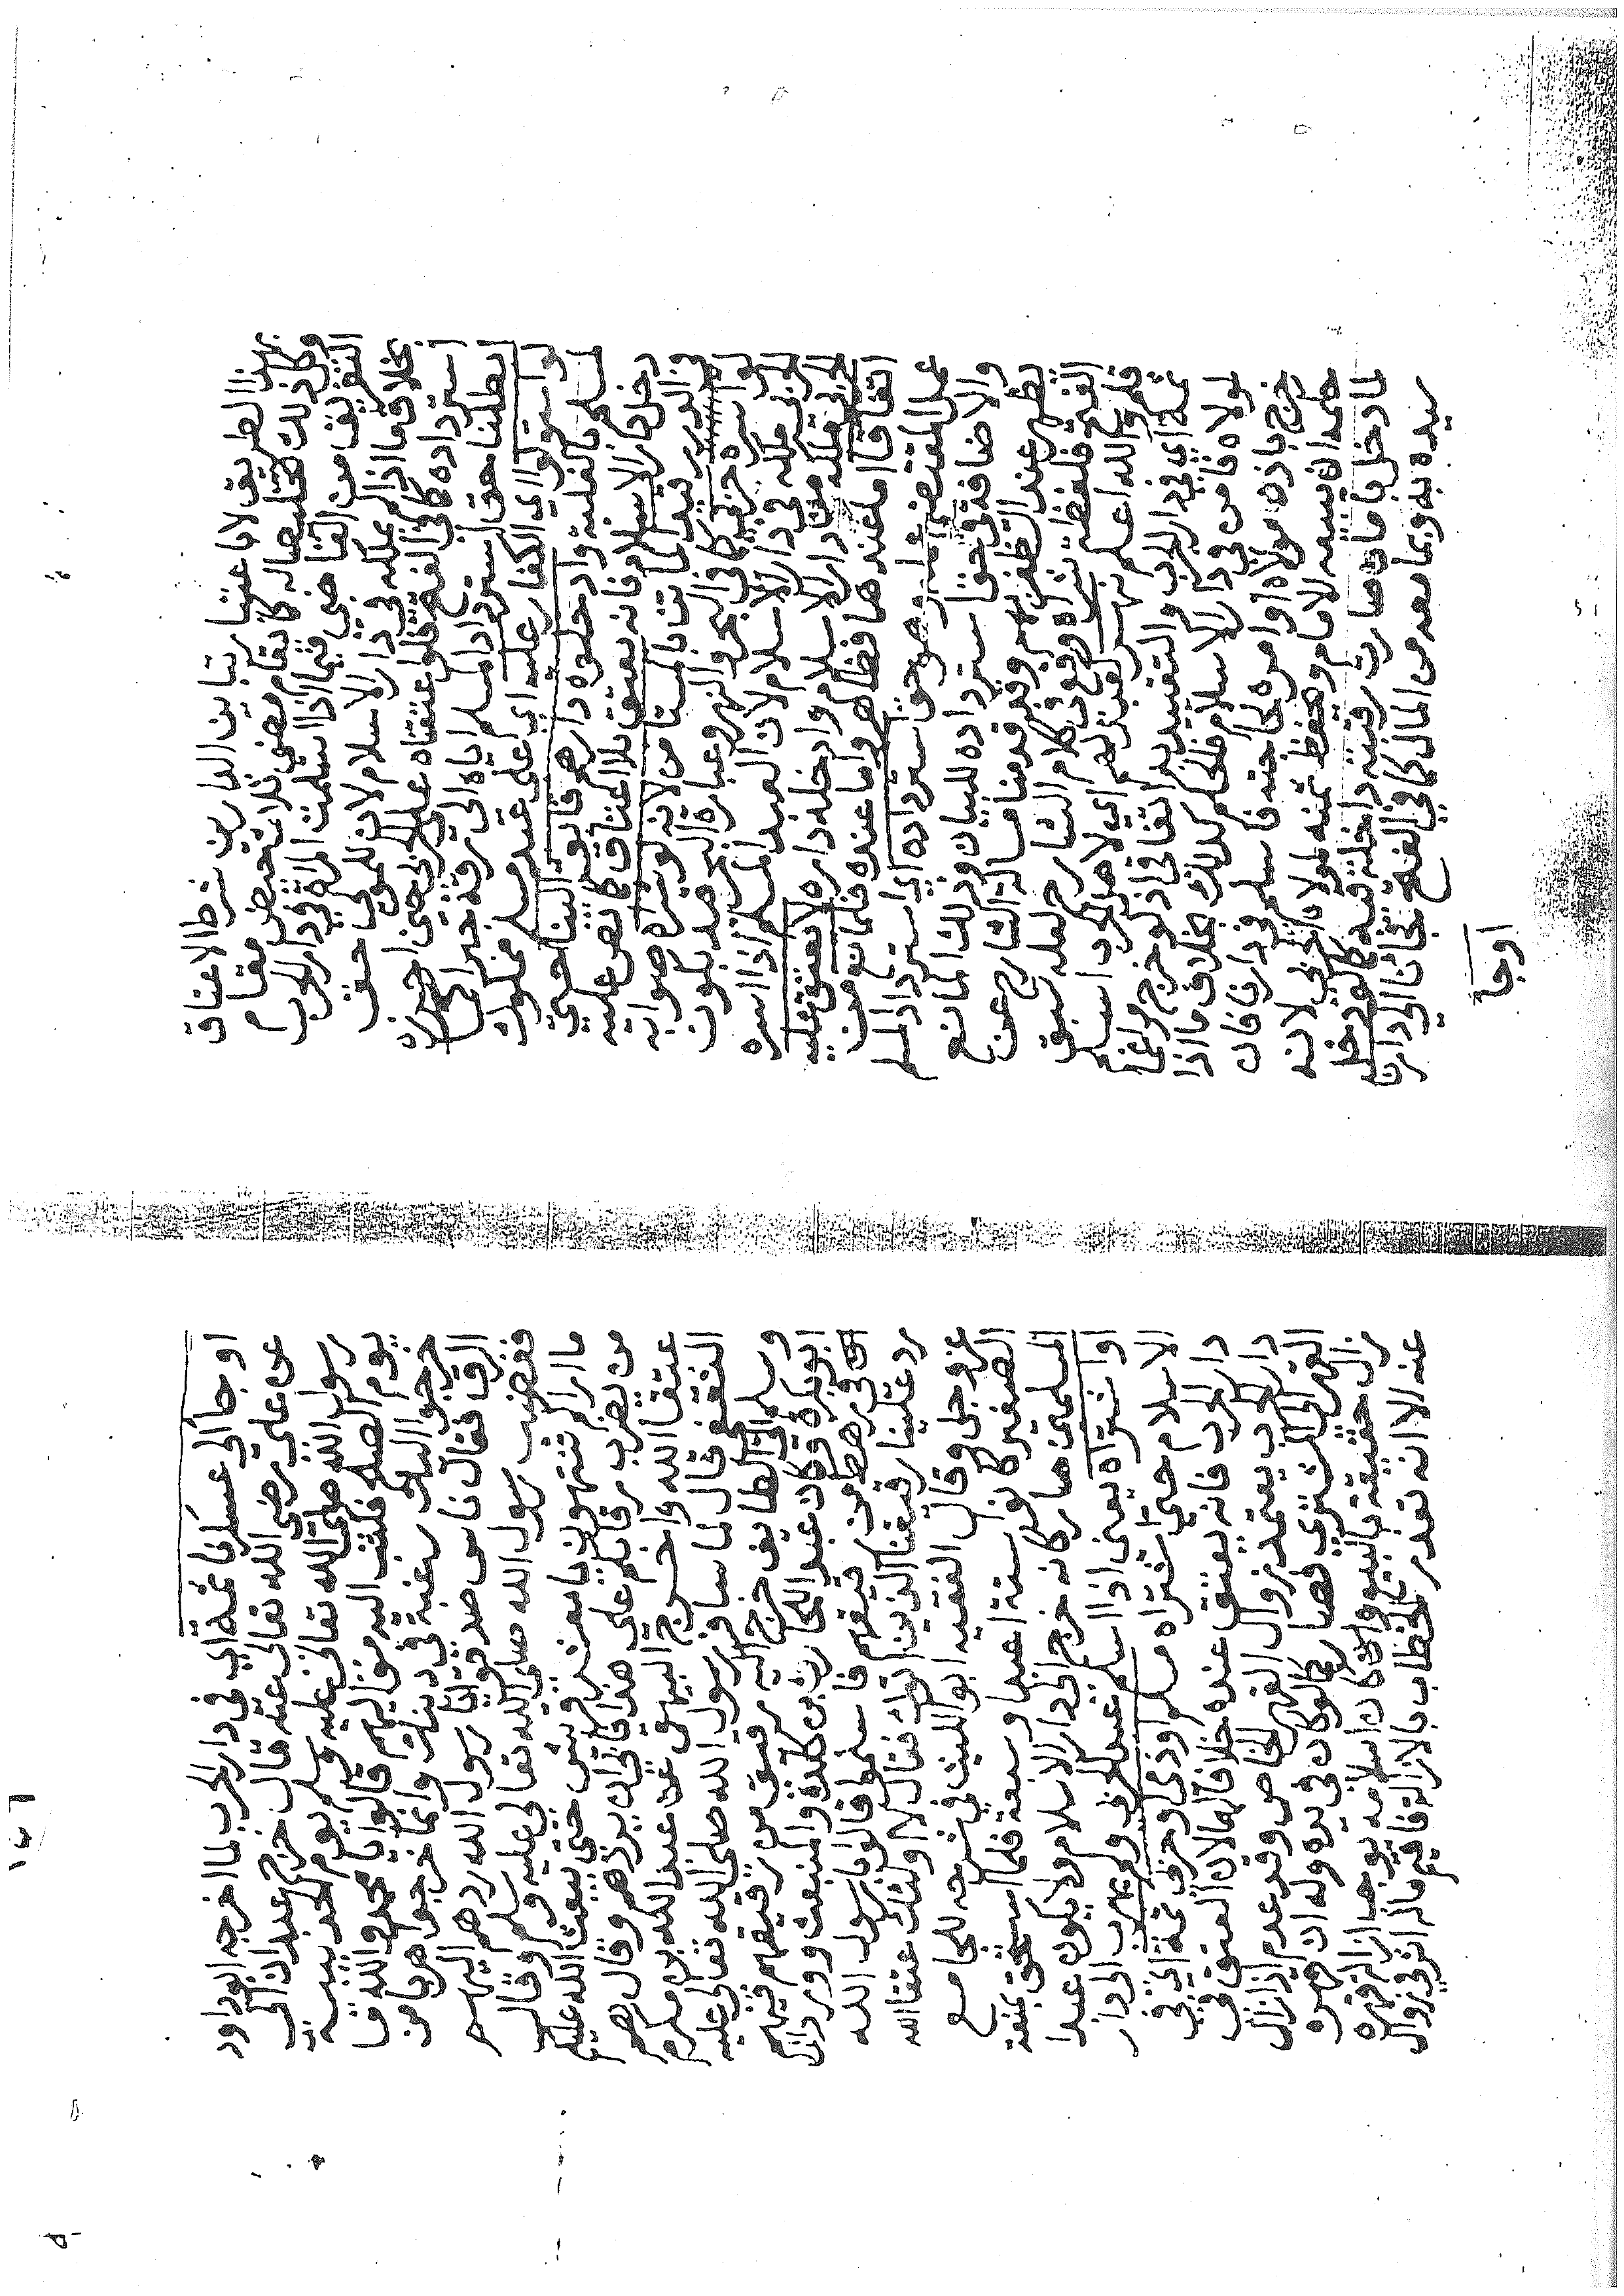 بهذا الطريق لا باعتبار تباين الدارين شرط الاعتاق
وكان ذلك تخليصا له كما يقام مضي ثلاث حيض مقام
التفريق من القاضي فيما اذا اسلمت المراة في دار الحرب
بخلاف ما اذا لم يملكه في دار الاسلام لان للمولى حق
استرداده كما في الفتح فلو اعتقناه على الحربي حين احرزه
ابطلنا حق استرداد المسلم اياه الى رقه جبرا
واستولوا اي الكفار عليه اي على عبد مسلم مملوك
لمسلم بالغلبة وادخلوه دارهم فابق الينا حتى
دخل دار الاسلام فانه يعتق بلا اعتاق كما نص عليه
في الدرر قيد المستامن لانه لو شراه صوابه
لو اسره حربي كما في البحر والنهر وعبارة البحر قيد بكون
الحربي ملكه في دار الاسلام لان العبد المسلم اذا اسره
الحربي ملكه من دار الاسلام وادخله داره لا يعتق عليه
اتفاقا اما عندهما فظاهر واما عنده فللمانع من
عمل المقتضي عمله وهو حق استرداد المسلم
والاضافة في حق استرداده للبيان وذلك المانع
يظهر عند الظفر بهم وقد قدمنا مسالة الشارح عن
الفتح فلفظة شراه وقعت في كلام الشارح لعله سبق
قلم والله اعلم نهر كعبد لهم اي لاهل الحرب اسلم
ثمة اي في دار الحرب والتقييد به اتفاقي اذ لو خرج مراغما
لمولاه فامن في دار الاسلام فالحكم كذلك بخلاف ما اذا
خرج باذن مولاه او امره لحاجته فاسلم في دارنا فان
حكمه ان يبيعه الامام ويحفظ ثمنه لمولاه الحربي لانه
لما دخل بامان صارت رقبته داخلة فيه كما لو دخل
سيده به وبما معه من المال كما في الفتح فجانا الى دارنا
اوجا
او جا الى عسكرنا ثمة اي في دار الحرب لما اخرجه ابو داود
عن علي رضي الله تعالى عنه قال خرج عبدان الى
رسول الله صلى الله تعالى عليه وسلم يوم الحديبية
يوم الصلح فكتب اليه مواليهم قالوا يا محمد والله ما
خرجوا اليك رغبة في دينك وانما خرجوا هربا من
الرق فقال ناس صدقوا يا رسول الله ردهم اليهم
فغضب رسول الله صلى الله تعالى عليه وسلم وقال
ما اراكم تنتهون يا معشر قريش حتى يبعث الله عليكم
من يضرب رقابكم على هذا فابى ان يردهم وقال هم
عتقا الله واخرج البيهقي عن عبد الله بن مكرم
الثقفي قال لما ساق رسول الله صلى الله تعالى عليه
وسلم الى الطايف خرج اليه رقيق من رقيقهم فيهم
ابو بكرة وكان عبد الحارث بن كلدة والمنبعث ووردان
في رهط من رقيقهم فاسلموا قالوا يا رسول الله
رد علينا رقيقنا الذين اتوك فقال لا اولئك عتقا الله
عز وجل وقال الفقيه ابو الليث في شرحه للجامع
الصغير كانوا ستة اعبد او سبعة فلما استحق بمنعة
المسلمين صار كانه خرج الى دار الاسلام ولا يكون عبدا
واشتراه يعني اذا اسلم عبد الحربي ولم يهرب الى دار
الاسلام حتى اشتراه مسلم او ذمي او حربي ثمة اي في
دار الحرب فانه يعتق عنده خلافا لهما لان العتق في
دار الحرب يعتمد زوال القهر الخاص وقد عدم اذ زال
القهر الى المشتري فصار كما لو كان في يده وله ان قهره
زال حقيقة بالبيع وكان اسلامه يوجب ازالة قهره
عنه الا انه تعذر الخطاب بالازالة فاقيم ماله اثر في زوال